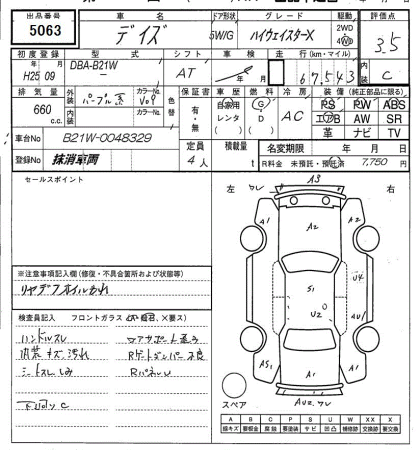 出品番号 車名 ドア形状 グレード 駆動 評価点
5063 デイズ 5W/G ハイウェイスターX 2WD 4WD 3.5
初度登録 型式 シフト 車検 走行(km・マイル) 内装
H25年09月 DBA-B21W AT 67,543 C
排気量 外装 カラーNo. 色替 保証書 車歴 燃料 冷房 装備(純正部品に限る)
660c.c. パープル系 有・無 自家用 レンタ G D AC PS PW ABS
内装 カラーNo. エアB AW SR
車台No B21W-0048329 革 ナビ TV
登録No 抹消車両 定員 4人 積載量 t 名変期限 年 月 日
R料金 未預託・預託済 7,750円
セールスポイント
左 右
A3
A1 A2 A1
S1 U4
U2 AU1
AS1 A1
※注意事項記入欄(修復・不具合箇所および状態等)
リヤデフオイルもれ
検査員記入 フロントガラス
ハンドルスレ
内装キズ汚れ
シートスレしみ
下回りC
スペア
A B C P S U W X XX
線キズ 要板金 腐蝕 要塗装 サビ 凹凸 補修跡 要交換